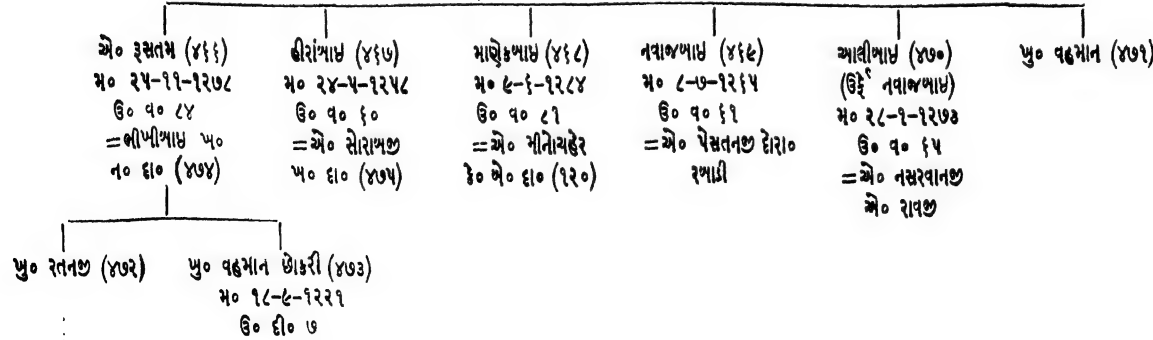 એ૦ રૂસતમ (૪૬૬)
મ૦ ૨૫-૧૧-૧૨૭૮
ઉ૦ વ૦ ૮૪
=ભીખીબાઇ ખ૦
ન૦ દા૦ (૪૭૪)
હીરાંબાઇ (૪૬૭)
મ૦ ૨૪-૫-૧૨૫૮
ઉ૦ વ૦ ૬૦
=એ૦ સોરાબજી
ખ૦ દા૦ (૪૭૫)
માણેકબાઇ (૪૬૮)
મ૦ ૯-૬-૧૨૮૪
ઉ૦ વ૦ ૮૧
=એ૦ મીનોચહેર
કે૦ એ૦ દા૦ (૧૨૦)
નવાજબાઇ (૪૬૯)
મ૦ ૮-૭-૧૨૬૫
ઉ૦ વ૦ ૬૧
=એ૦ પેસતનજી દોરા૦
રબાડી
આલીબાઇ (૪૭૦)
(ઉર્ફે નવાજબાઇ)
મ૦ ૨૮-૧-૧૨૭૩
ઉ૦ વ૦ ૬૫
=એ૦ નસરવાનજી
એ૦ રાવજી
ખુ૦ વહમાન (૪૭૧)
ખુ૦ રતનજી (૪૭૨)
ખુ૦ વહમાન છોકરી (૪૭૩)
મ૦ ૧૮-૯-૧૨૨૧
ઉ૦ દી૦ ૭